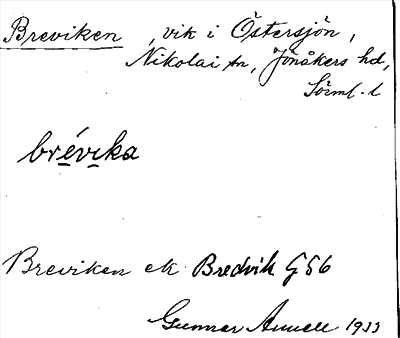 Breviken, vik i Östersjön,
Nikolai sn, Jönåkers hd,
Sörml. l
brévika
Breviken ek Bredvik G 56
Gunnar 1933